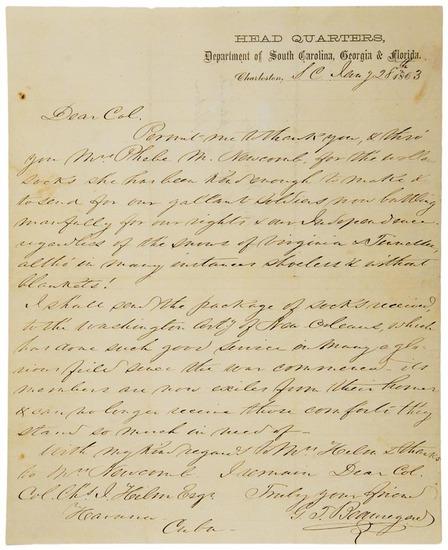 HEAD QUARTERS,
Department of South Carolina, Georgia & Florida.
Charleston, S C Jany 28th 1863
Dear Col.
Permit me to thank you, & thro'
you Mrs Phebe M. Newcomb, for the
socks she has been kind enough to make &
to send for our gallant soldiers, now battling
manfully for our rights & our Independence
regardless of the snows of Virginia & Tennessee,
altho' in many instances shoeless & without
blankets!
I shall send the package of socks received,
to the Washington Arty of New Orleans, which
has done such good service in many a glo-
rious field since the war commenced—its
members are now exiles from their homes
& can no longer receive those comforts they
stand so much in need of—
With my kind regards to Mrs Helm & thanks
to Mrs Newcomb I remain Dear Col.
Col. Chs J. Helm Esqr Truly your friend
Havana G. T. Beauregard
Cuba—